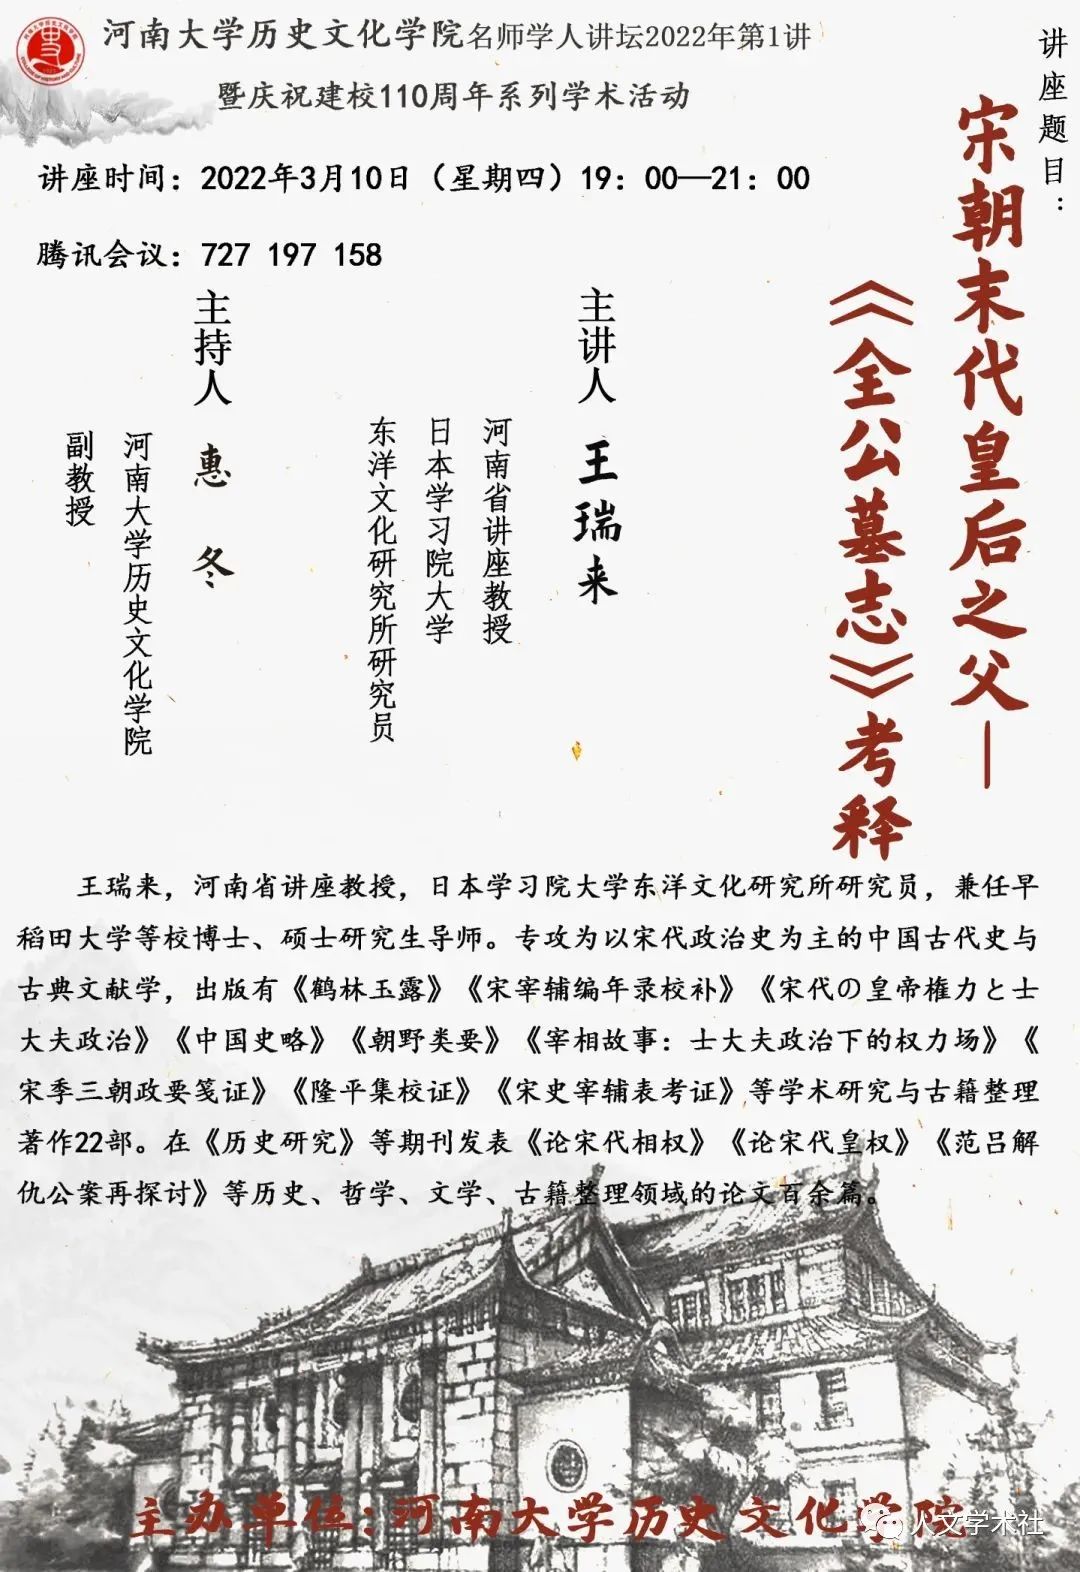 河南大学历史文化学院名师学人讲坛2022年第1讲
暨庆祝建校110周年系列学术活动
讲座时间：2022年3月10日（星期四）19：00—21：00
腾讯会议：727 197 158
讲座题目：
宋朝末代皇后之父—
《全公墓志》考释
主讲人 王瑞来
河南省讲座教授
日本学习院大学
东洋文化研究所研究员
主持人 惠冬
河南大学历史文化学院
副教授
王瑞来，河南省讲座教授，日本学习院大学东洋文化研究所研究员，兼任早
稻田大学等校博士、硕士研究生导师。专攻为以宋代政治史为主的中国古代史与
古典文献学，出版有《鹤林玉露》《宋宰辅编年录校补》《宋代の皇帝権力と士
大夫政治》《中国史略》《朝野类要》《宰相故事：士大夫政治下的权力场》《
宋季三朝政要笺证》《隆平集校证》《宋史宰辅表考证》等学术研究与古籍整理
著作22部。在《历史研究》等期刊发表《论宋代相权》《论宋代皇权》《范吕解
仇公案再探讨》等历史、哲学、文学、古籍整理领域的论文百余篇。
主办单位：河南大学历史文化学院
人文学术社